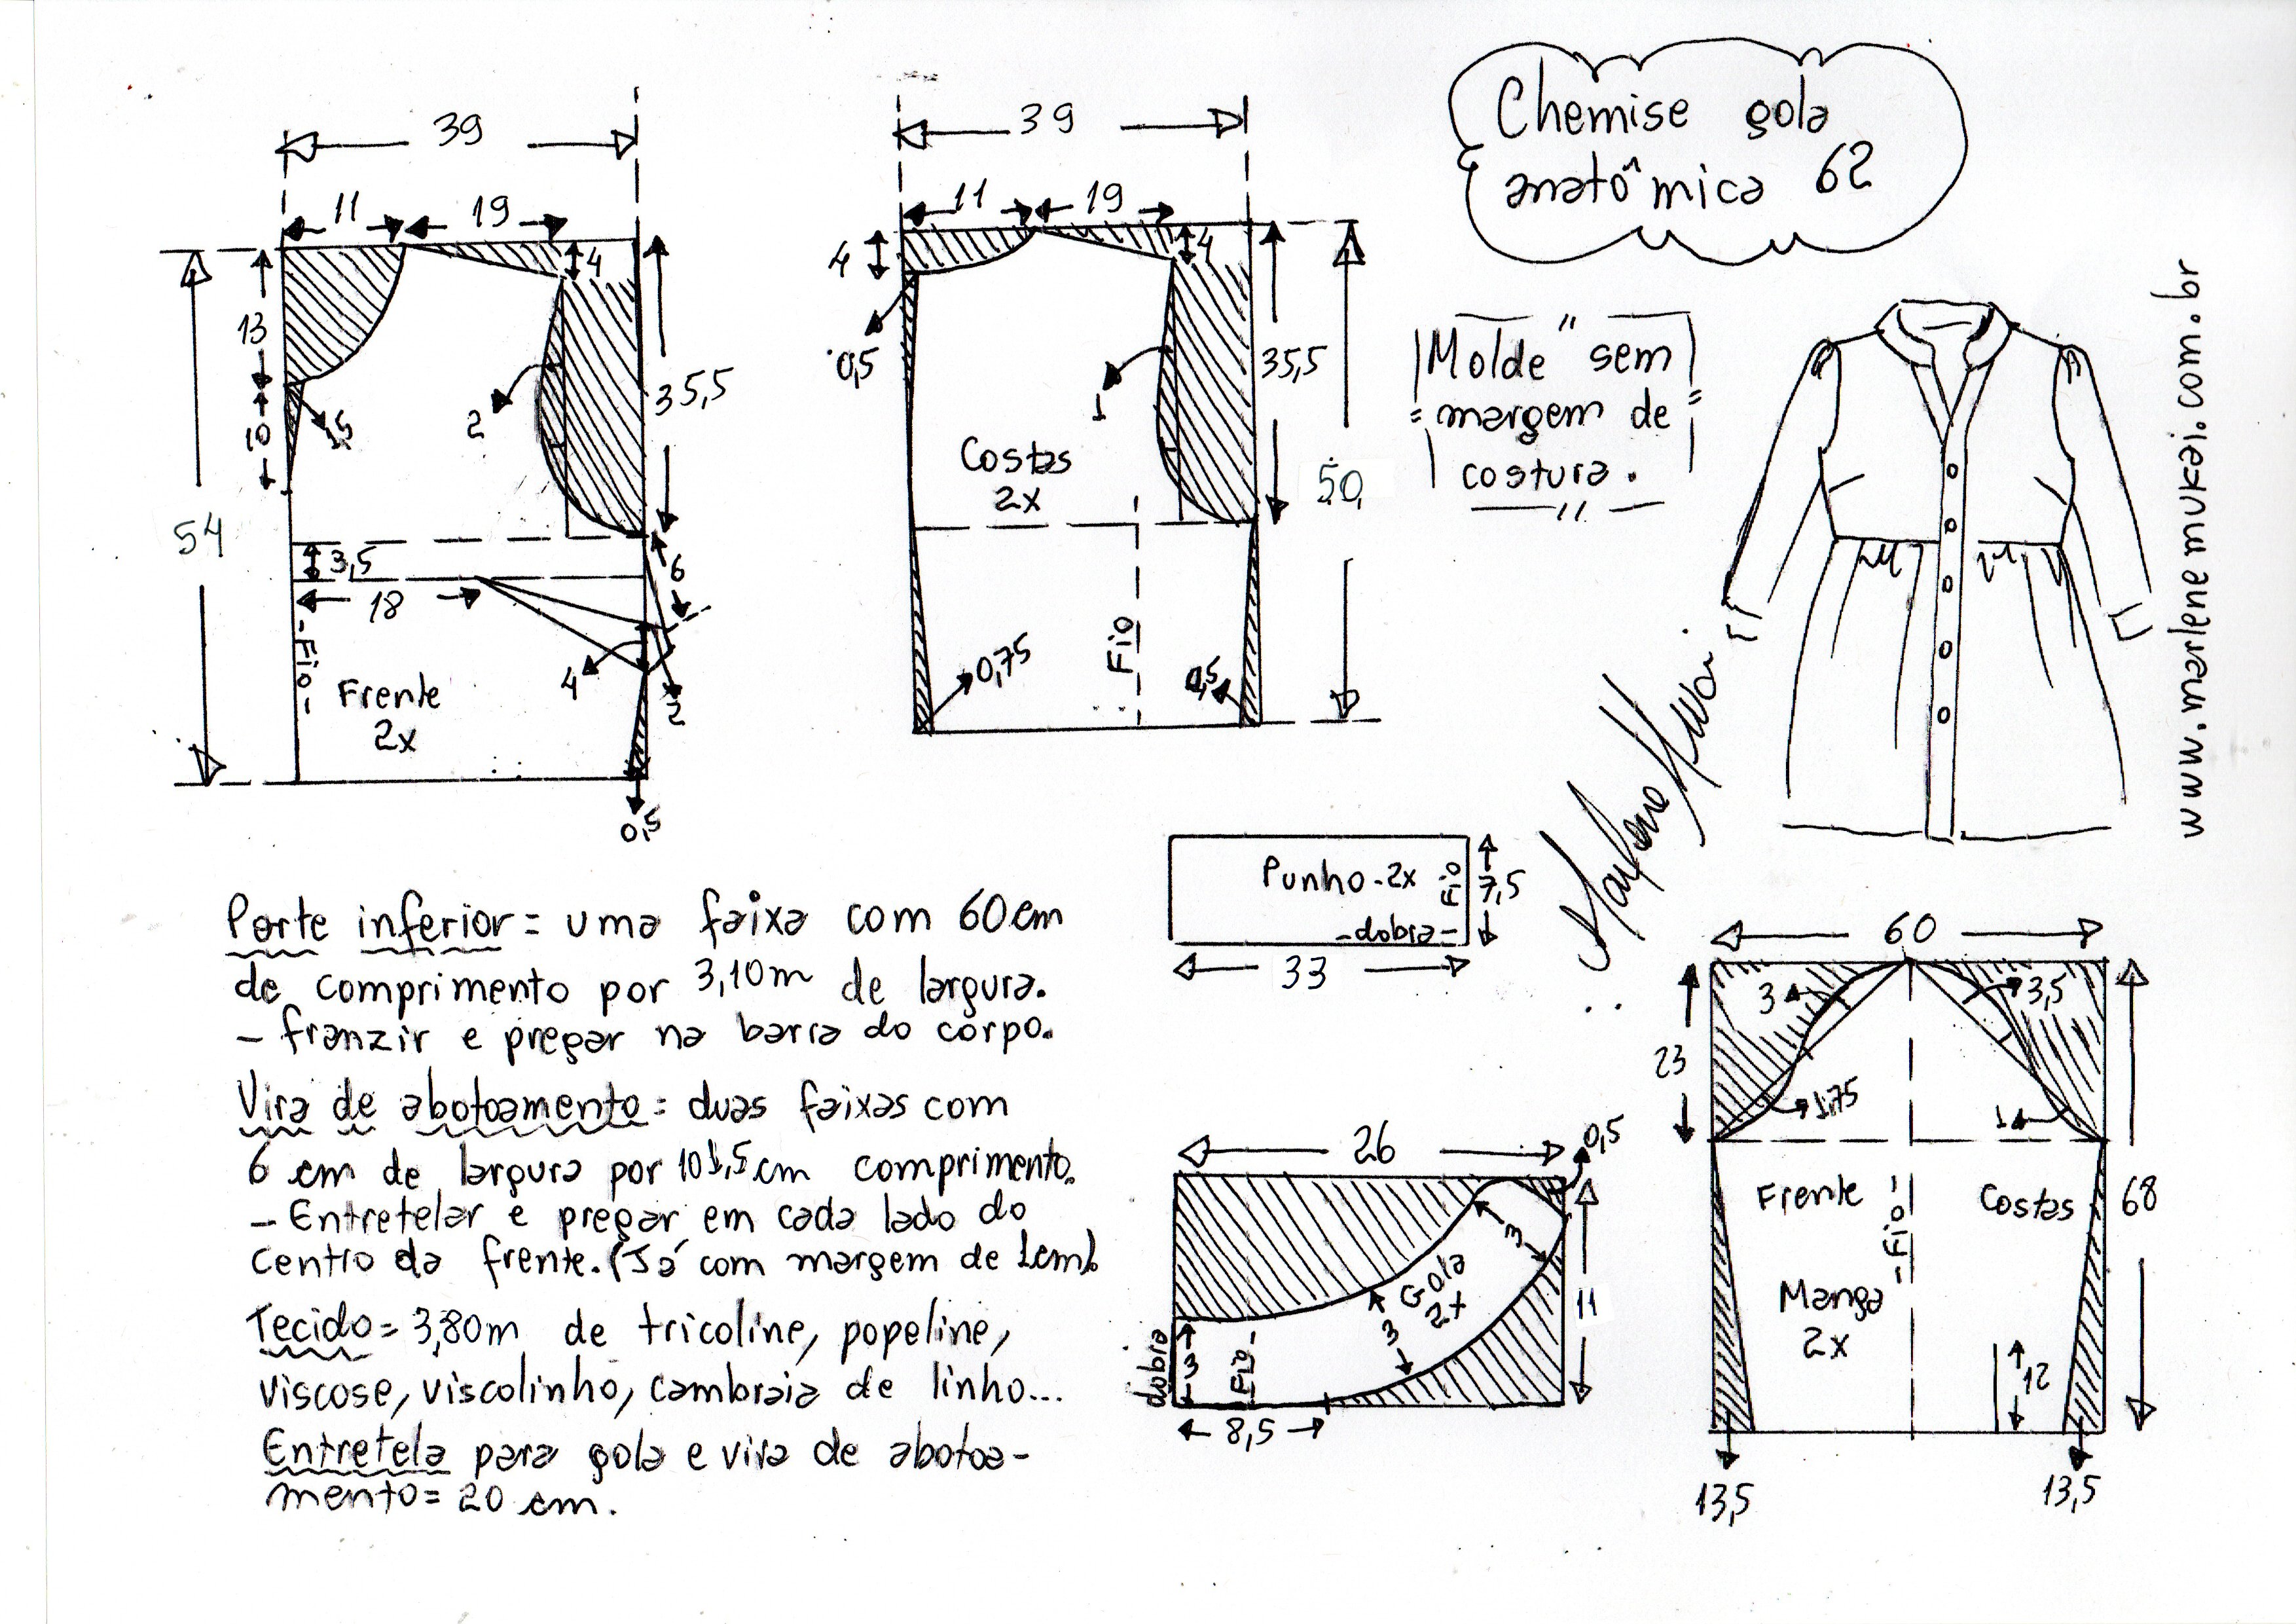 Chemise gola
anatômica 62
"Molde" sem
margem de
costura.
www.marlenemukai.com.br
39
11
19
4
13
10
1,5
2
35,5
54
3,5
18
6
-Fio-
4
2
Frente
2x
0,5
39
11
19
4
4
0,5
1
35,5
50
Costas
2x
Fio
0,75
0,5
Punho-2x
Fio
7,5
-dobra-
33
60
3
3,5
23
1,75
1
Frente
-Fio-
Costas
68
Manga
2x
12
13,5
13,5
26
0,5
3
Gola
2x
11
3
dobra
3
Fio-
8,5
Parte inferior= uma faixa com 60cm
de comprimento por 3,10m de largura.
- franzir e pregar na barra do corpo.
Vira de abotoamento= duas faixas com
6 cm de largura por 101,5cm comprimento.
- Entretelar e pregar em cada lado do
centro da frente.(Já com margem de 1cm).
Tecido= 3,80m de tricoline, popeline,
viscose, viscolinho, cambraia de linho...
Entretela para gola e vira de abotoa-
mento= 20 cm.